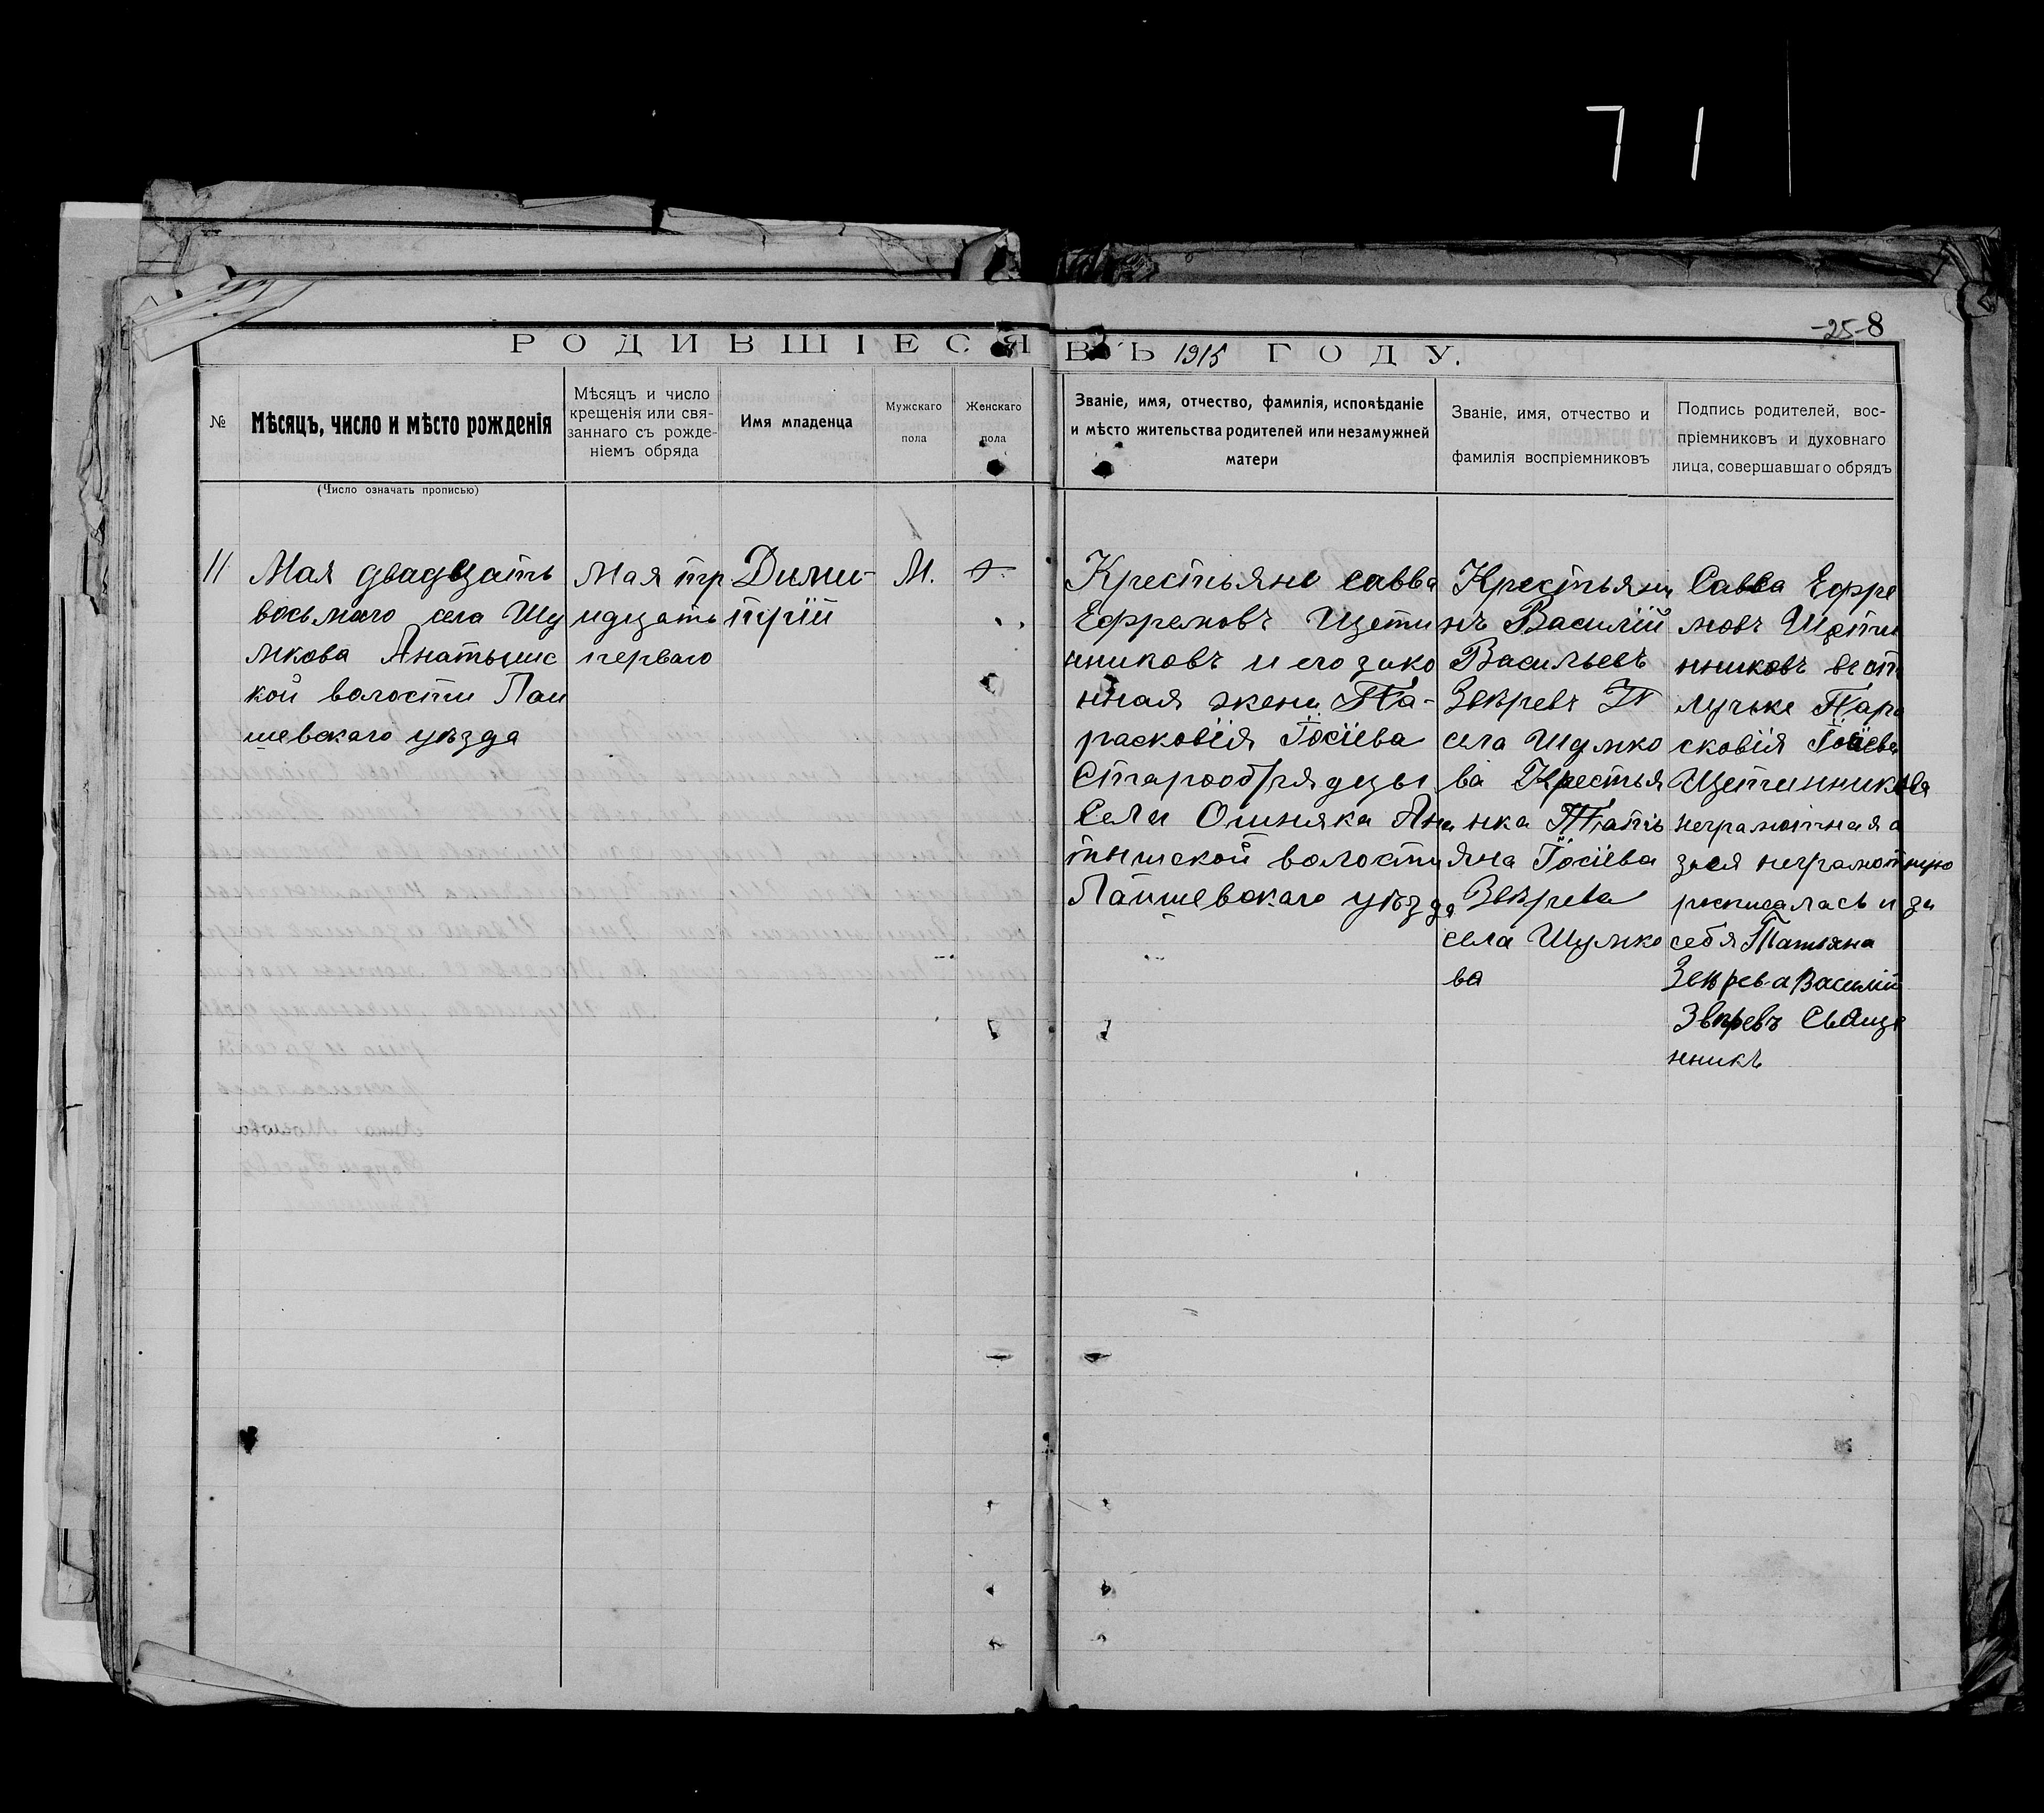 71
-25- 8
РОДИВШІЕСЯ ВЪ 1915 ГОДУ.
№
Мѣсяцъ, число и мѣсто рожденія
(Число означать прописью)
Мѣсяцъ и число
крещенія или свя-
заннаго съ рожде-
ніемъ обряда
Имя младенца
Мужскаго
пола
Женскаго
пола
Званіе, имя, отчество, фамилія, исповѣданіе
и мѣсто жительства родителей или незамужней
матери
Званіе, имя, отчество и
фамилія воспріемниковъ
Подпись родителей, вос-
пріемниковъ и духовнаго
лица, совершавшаго обрядъ
11
Мая двадцать
восьмого села Шу
мкова Анатышс
кой волости Лаи
шевскаго уѣзда
Мая тр
идцать
перваго
Дими-
трій
М.
Крестьяне савва
Ефремовъ Щети
нниковъ и его зако
нная жена Па-
расковія Іосіева
Старообрядцы
Села Ошняка Ана
тышской волости
Лаишевскаго уѣзда
Крестьяни
нъ Василій
Васильевъ
Звѣревъ
села Шумко
ва Крестья
нка Татіь
яна Іосіева
Звѣрева
села Шумко
ва
Савва Ефре
мовъ Щети
нниковъ вот
лучьке Пара
сковія Іосіева
Щетинникова
неграмотная а
заея неграмотную
росписалась и за
себя Татияна
Звѣрева Василій
Звѣревъ Свяще
нникъ